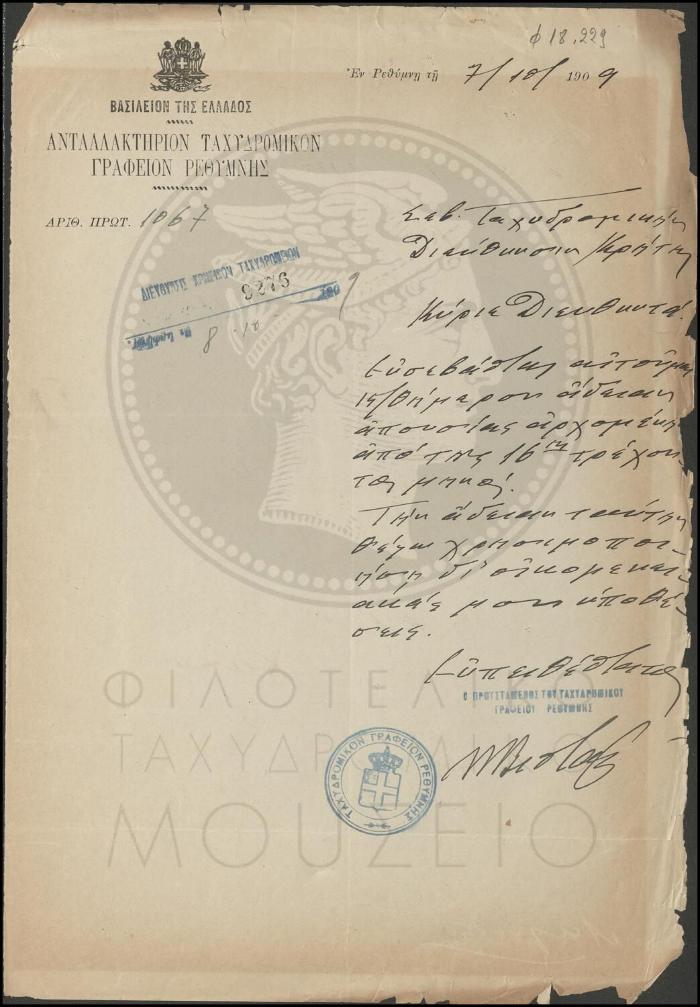 φ 18.229
Ἐν Ρεθύμνῃ τῇ 7/10/1909
ΒΑΣΙΛΕΙΟΝ ΤΗΣ ΕΛΛΑΔΟΣ
ΑΝΤΑΛΛΑΚΤΗΡΙΟΝ ΤΑΧΥΔΡΟΜΙΚΟΝ
ΓΡΑΦΕΙΟΝ ΡΕΘΥΜΝΗΣ
ΑΡΙΘ. ΠΡΩΤ. 1067
Σεβ. Ταχυδρομικὴν
Διεύθυνσιν Κρήτης
ΔΙΕΥΘΥΝΣΙΣ ΚΡΗΤΙΚΩΝ ΤΑΧΥΔΡΟΜΕΙΩΝ
9276
8 10 9
Κύριε Διευθυντά
Εὐσεβάστως αἰτοῦμαι
15/θήμερον ἄδειαν
ἀπουσίας ἀρχομένην
ἀπὸ τῆς 16ης τρέχον-
τος μηνός.
Τὴν ἄδειαν ταύτην
θέλω χρησιμοποι-
ήσῃ δι' οἰκογενει-
ακάς μου ὑποθέ-
σεις.
Εὐπειθέστατος
Ο ΠΡΟΪΣΤΑΜΕΝΟΣ ΤΟΥ ΤΑΧΥΔΡΟΜΙΚΟΥ
ΓΡΑΦΕΙΟΥ ΡΕΘΥΜΝΗΣ
ΤΑΧΥΔΡΟΜΙΚΟΝ ΓΡΑΦΕΙΟΝ ΡΕΘΥΜΝΗΣ
ΦΙΛΟΤΕΛΙΚΟ
ΤΑΧΥΔΡΟΜΙΚΟ
ΜΟΥΣΕΙΟ